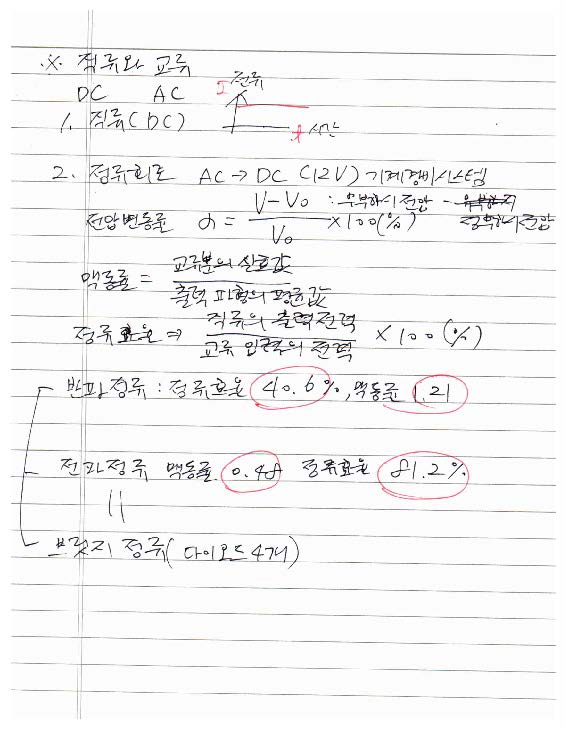 ※ 직류와 교류
DC AC
I 전류
1. 직류(DC)
t 시간
2. 정류회로 AC → DC (12V) 기계경비시스템
전압변동률 δ = V-V₀ / V₀ ×100(%) : 무부하시 전압 - 정부하시 전압
맥동률 = 교류분의 실효값 / 출력 파형의 평균값
정류효율 ⇒ 직류의 출력전력 / 교류 입력의 전력 × 100(%)
반파정류 : 정류효율 40.6%, 맥동률 1.21
전파정류 맥동률 0.48 정류효율 81.2%
||
브릿지 정류( 다이오드 4개)